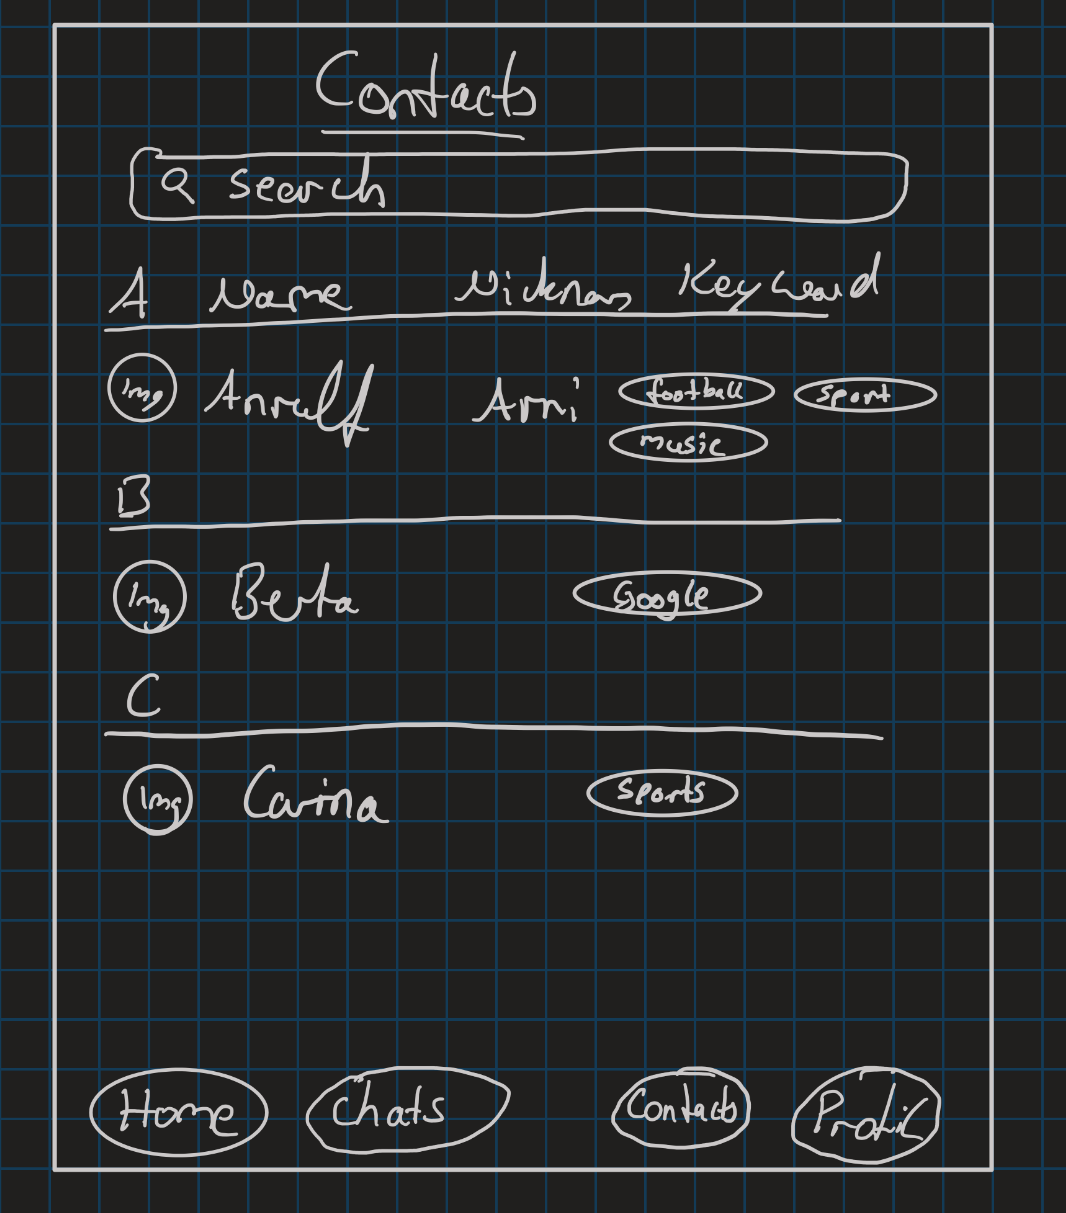 Contacts
search
A Name Nicknam Keyword
Img Anrulf Arni football sport
music
B
Img Berta Google
C
Img Carina sports
Home Chats Contacts Profil